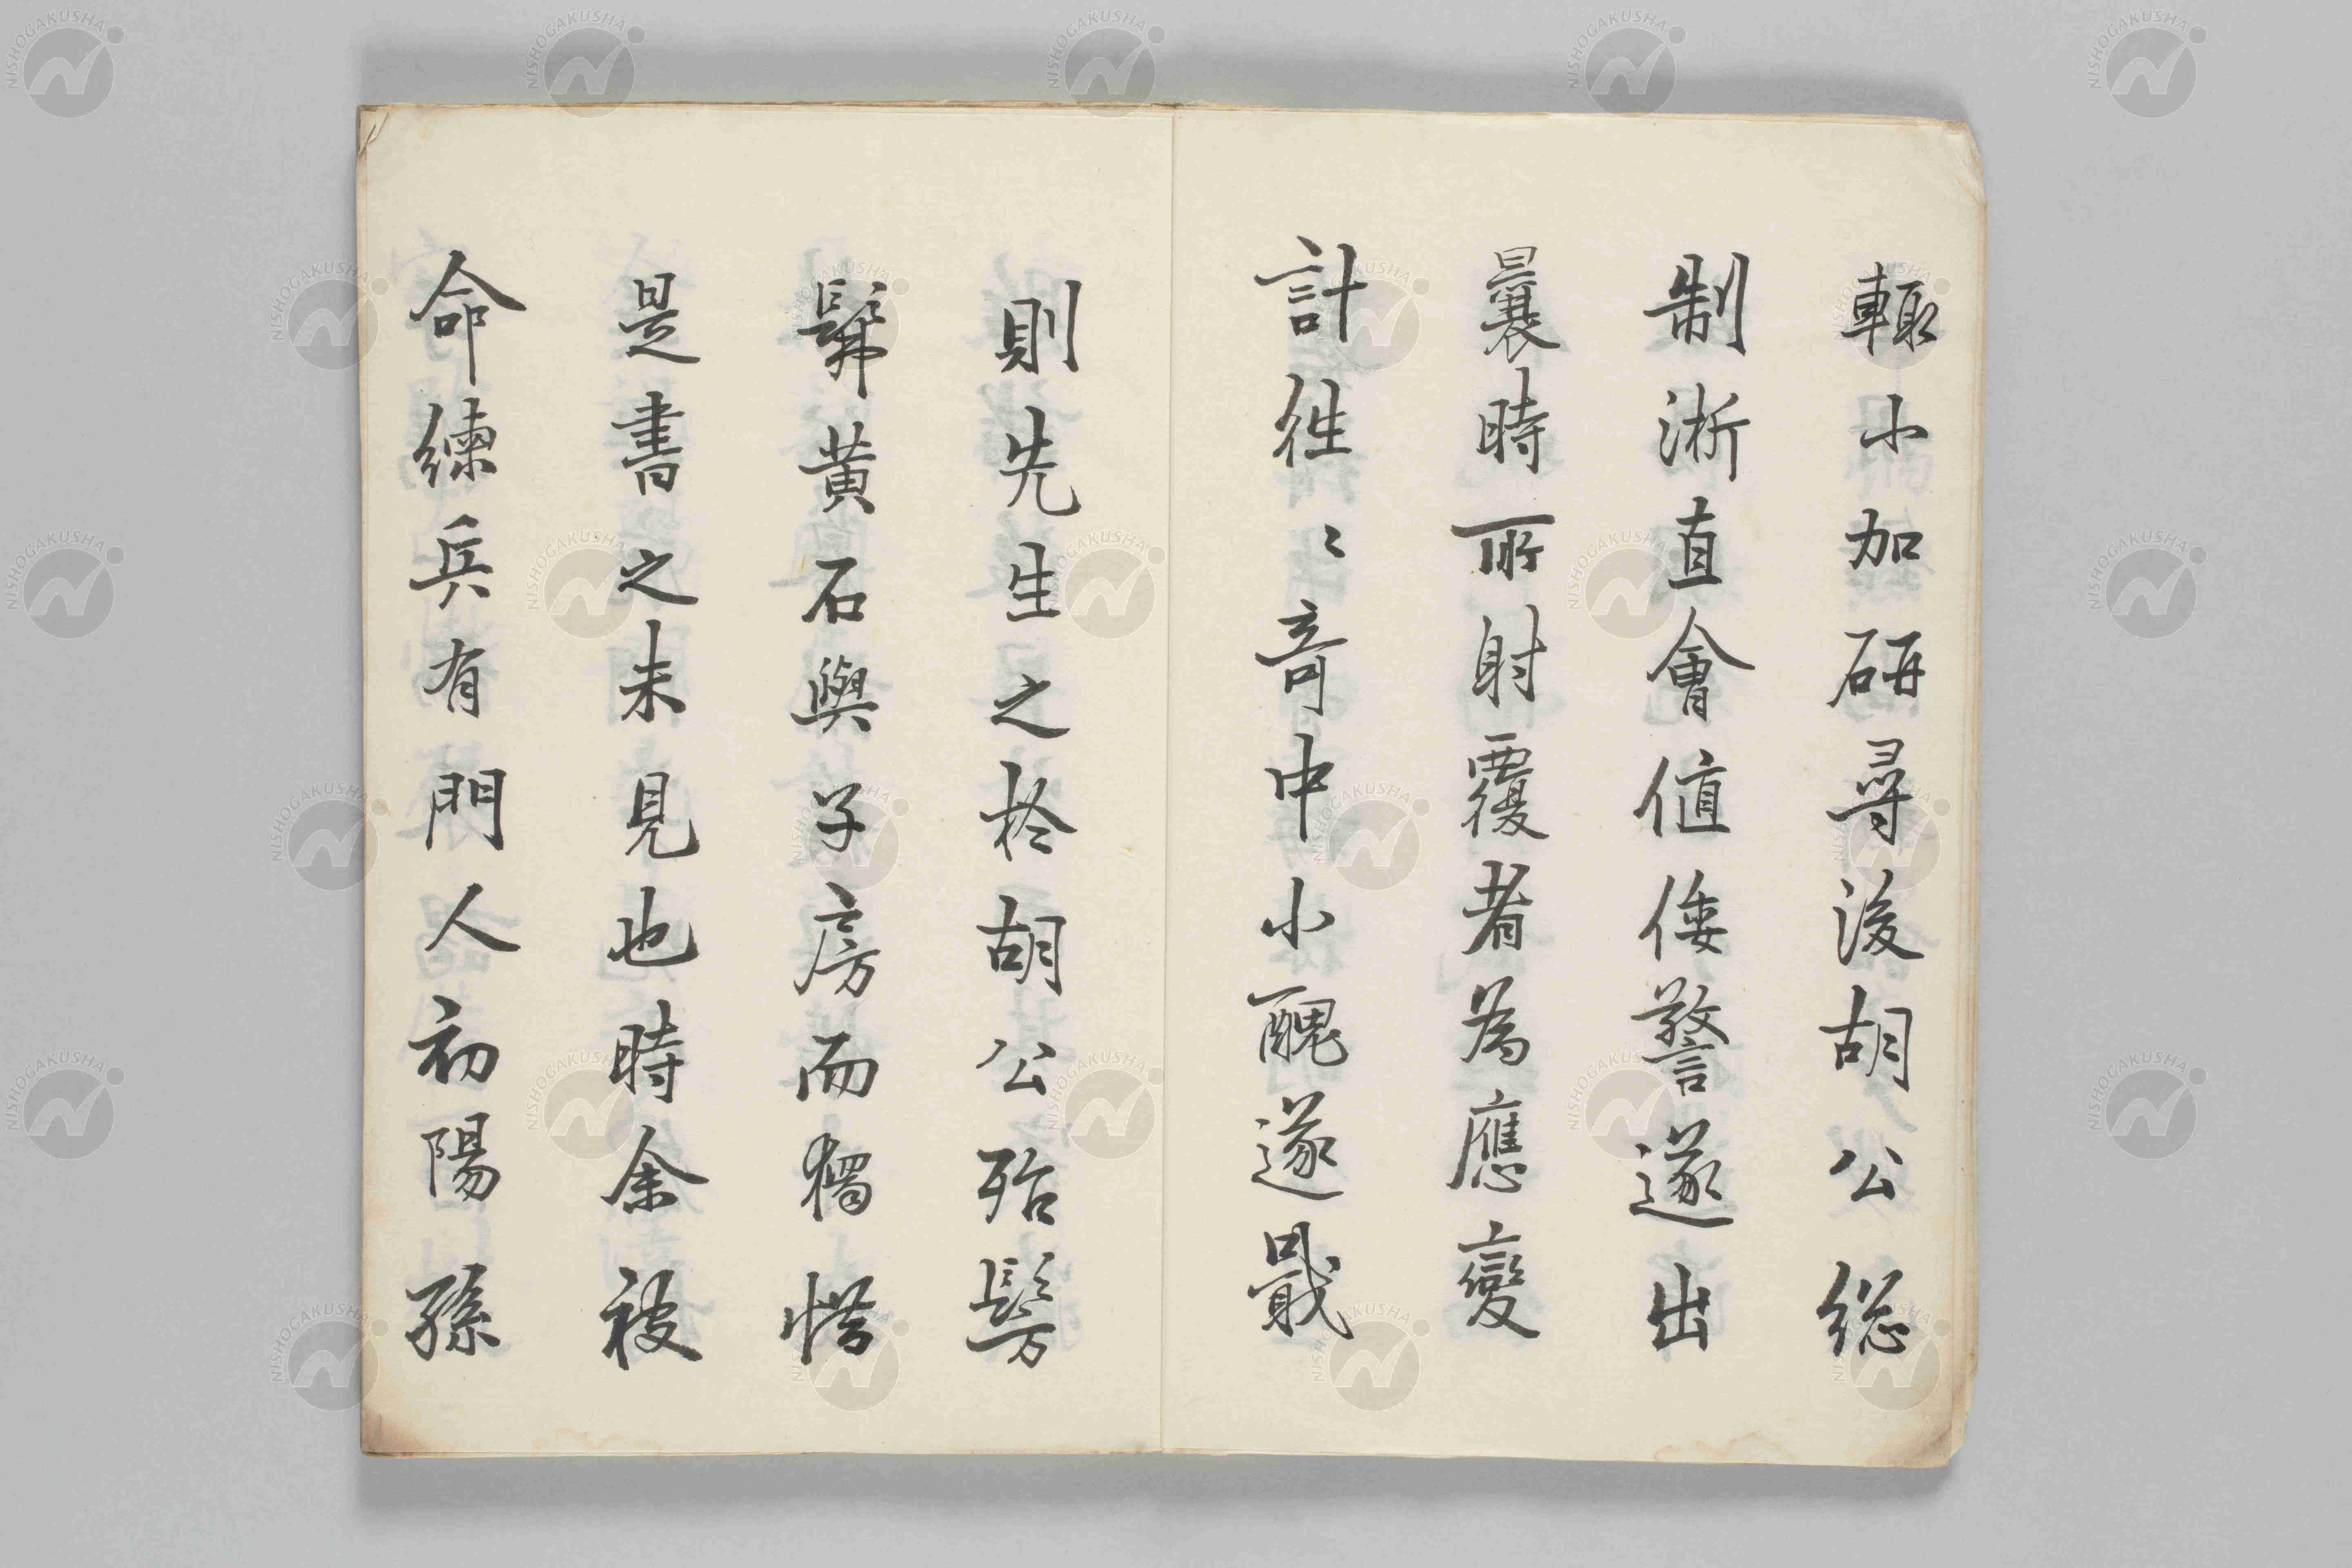 輙小加研尋後胡公総
制淅直會値倭警遂出
曩時所射覆者為應變
計徃〻竒中小醜遂戢
則先生之於胡公殆髣
髴黄石與子房而獨惜
是書之未見也時余被
命練兵有門人初陽孫
NISHOGAKUSHA